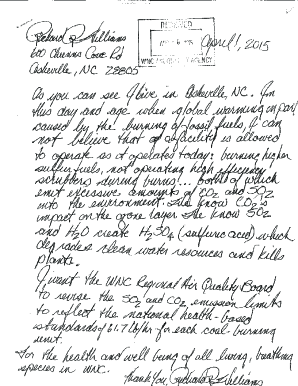 Richard R Williams
600 Chunns Cove Rd
Asheville, NC 28805
RECEIVED
WNC AGENCY
April 1, 2015
As you can see I live in Asheville, NC. In
this day and age when global warming in part
caused by the burning of fossil fuels, I can
not believe that a facility is allowed
to operate as it operates today: burning higher
sulfur fuels, not operating high efficiency
scrubbers during turns... both of which
emit excessive amounts of CO2 and SO2
into the environment. We know CO2's
impact on the ozone layer. We know SO2
and H2O create H2SO4 (sulfuric acid) which
degrades clean water resources and kills
plants.
I want the WNC Regional Air Quality Board
to revise the SO2 and CO2 emission limits
to reflect the national health-based
standards of 61.7 lb/hr for each coal-burning
unit.
For the health and well being of all living, breathing
species in WNC.
Thank You, Richard R Williams